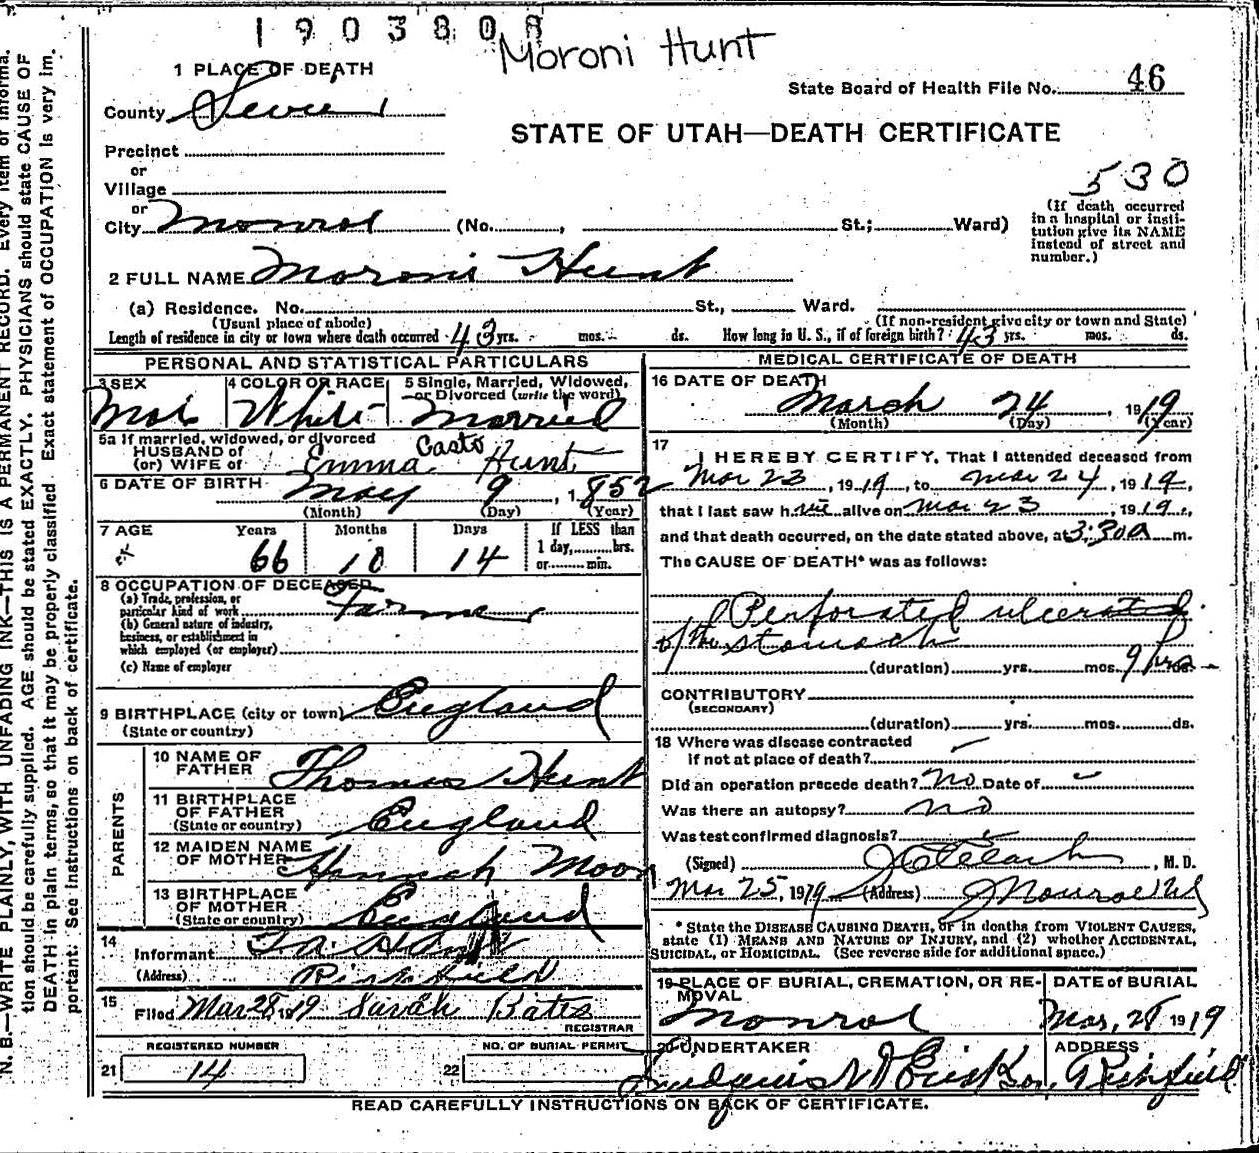 1903808
Moroni Hunt
1 PLACE OF DEATH
State Board of Health File No. 46
County Sevier
STATE OF UTAH—DEATH CERTIFICATE
Precinct
530
or
Village
or
City Monroe (No. , St.; Ward)
(If death occurred
in a hospital or insti-
tution give its NAME
instead of street and
number.)
2 FULL NAME Moroni Hunt
(a) Residence. No. St., Ward.
(Usual place of abode) (If non-resident give city or town and State)
Length of residence in city or town where death occurred 43 yrs. mos. ds. How long in U. S., if of foreign birth? 43 yrs. mos. ds.
PERSONAL AND STATISTICAL PARTICULARS
3 SEX 4 COLOR OR RACE 5 Single, Married, Widowed,
or Divorced (write the word)
Male White Married
5a If married, widowed, or divorced
HUSBAND of
(or) WIFE of Emma Casto Hunt
6 DATE OF BIRTH May 9, 1852
(Month) (Day) (Year)
7 AGE Years Months Days If LESS than
1 day, hrs.
or min.
66 10 14
8 OCCUPATION OF DECEASED
(a) Trade, profession, or
particular kind of work Farmer
(b) General nature of industry,
business, or establishment in
which employed (or employer)
(c) Name of employer
9 BIRTHPLACE (city or town) England
(State or country)
PARENTS
10 NAME OF
FATHER Thomas Hunt
11 BIRTHPLACE
OF FATHER
(State or country) England
12 MAIDEN NAME
OF MOTHER Hannah Moon
13 BIRTHPLACE
OF MOTHER
(State or country) England
14
Informant Hunt
(Address) Richfield
15
Filed Mar 28, 1919 Sarah Bates
REGISTRAR
REGISTERED NUMBER NO. OF BURIAL PERMIT
21 14 22
MEDICAL CERTIFICATE OF DEATH
16 DATE OF DEATH
March 24, 1919
(Month) (Day) (Year)
17
I HEREBY CERTIFY, That I attended deceased from
Mar 23, 1919, to Mar 24, 1919,
that I last saw him alive on Mar 23, 1919,
and that death occurred, on the date stated above, at 3:30a m.
The CAUSE OF DEATH* was as follows:
Perforated ulcerated
of the stomach
(duration) yrs. mos. 9 hrs
CONTRIBUTORY
(SECONDARY)
(duration) yrs. mos. ds.
18 Where was disease contracted
if not at place of death?
Did an operation precede death? No Date of
Was there an autopsy? no
Was test confirmed diagnosis?
(Signed) , M. D.
Mar 25, 1919 (Address) Monroe Ut
* State the DISEASE CAUSING DEATH, or in deaths from VIOLENT CAUSES,
state (1) MEANS AND NATURE OF INJURY, and (2) whether ACCIDENTAL,
SUICIDAL, or HOMICIDAL. (See reverse side for additional space.)
19 PLACE OF BURIAL, CREMATION, OR RE-
MOVAL DATE of BURIAL
Monroe Mar, 28 1919
20 UNDERTAKER ADDRESS
Richfield
READ CAREFULLY INSTRUCTIONS ON BACK OF CERTIFICATE.
N. B.—WRITE PLAINLY, WITH UNFADING INK—THIS IS A PERMANENT RECORD. Every item of informa-
tion should be carefully supplied. AGE should be stated EXACTLY. PHYSICIANS should state CAUSE OF
DEATH in plain terms, so that it may be properly classified. Exact statement of OCCUPATION is very im-
portant. See instructions on back of certificate.